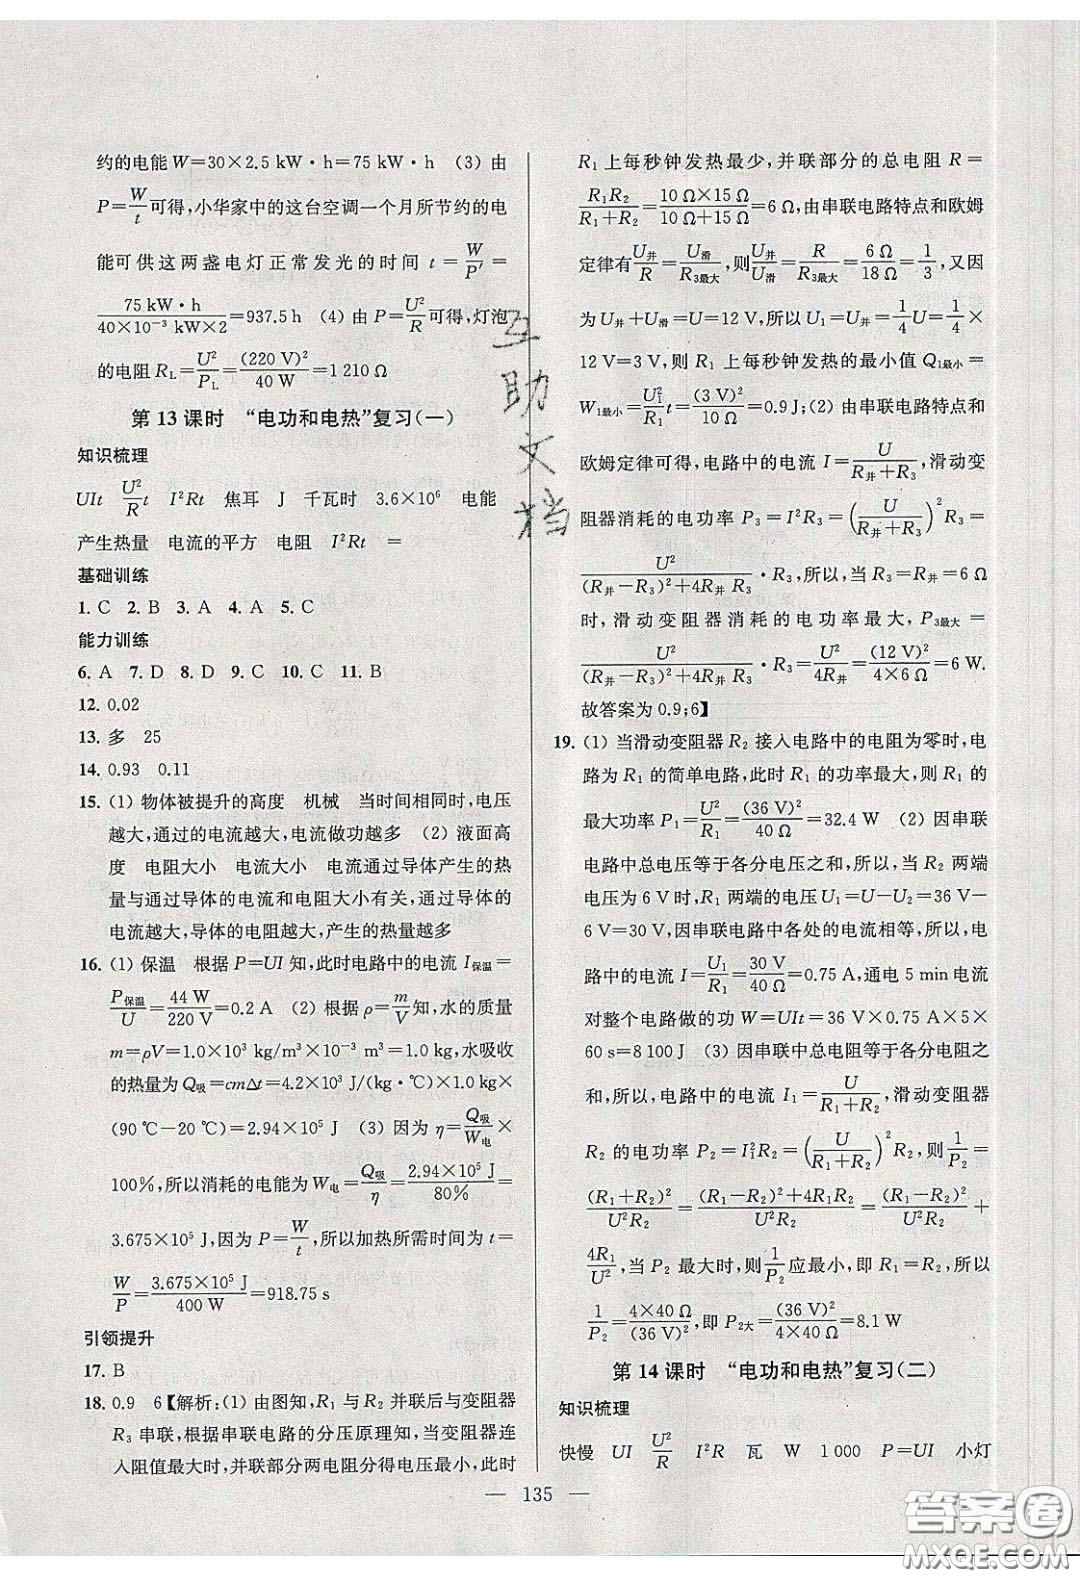 约的电能 W=30×2.5 kW·h=75 kW·h (3) 由
P=W/t可得,小华家中的这台空调一个月所节约的电
能可供这两盏电灯正常发光的时间 t=W/P′=
75 kW·h/40×10⁻³ kW×2=937.5 h (4) 由 P=U²/R可得,灯泡
的电阻 R_L=U²/P_L=(220 V)²/40 W=1 210 Ω
第 13 课时 “电功和电热”复习(一)
知识梳理
UIt U²/R t I²Rt 焦耳 J 千瓦时 3.6×10⁶ 电能
产生热量 电流的平方 电阻 I²Rt =
基础训练
1. C 2. B 3. A 4. A 5. C
能力训练
6. A 7. D 8. D 9. C 10. C 11. B
12. 0.02
13. 多 25
14. 0.93 0.11
15. (1) 物体被提升的高度 机械 当时间相同时,电压
越大,通过的电流越大,电流做功越多 (2) 液面高
度 电阻大小 电流大小 电流通过导体产生的热
量与通过导体的电流和电阻大小有关,通过导体的
电流越大,导体的电阻越大,产生的热量越多
16. (1) 保温 根据 P=UI 知,此时电路中的电流 I保温=
P保温/U=44 W/220 V=0.2 A (2) 根据 ρ=m/V知,水的质量
m=ρV=1.0×10³ kg/m³×10⁻³ m³=1.0 kg,水吸收
的热量为 Q吸=cmΔt=4.2×10³ J/(kg·℃)×1.0 kg×
(90 ℃-20 ℃)=2.94×10⁵ J (3) 因为 η=Q吸/W电×
100%,所以消耗的电能为 W电=Q吸/η=2.94×10⁵ J/80%=
3.675×10⁵ J,因为 P=W/t,所以加热所需时间为 t=
W/P=3.675×10⁵ J/400 W=918.75 s
引领提升
17. B
18. 0.9 6【解析:(1) 由图知,R₁ 与 R₂ 并联后与变阻器
R₃ 串联,根据串联电路的分压原理知,当变阻器连
入阻值最大时,并联部分两电阻分得电压最小,此时
R₁ 上每秒钟发热最少,并联部分的总电阻 R=
R₁R₂/R₁+R₂=10 Ω×15 Ω/10 Ω+15 Ω=6 Ω,由串联电路特点和欧姆
定律有U并/R=U滑/R₃最大,则U并/U滑=R/R₃最大=6 Ω/18 Ω=1/3,又因
为 U并+U滑=U=12 V,所以 U₁=U并=1/4U=1/4×
12 V=3 V,则 R₁ 上每秒钟发热的最小值 Q₁最小=
W₁最小=U₁²/R₁ t=(3 V)²/10 Ω=0.9 J;(2) 由串联电路特点和
欧姆定律可得,电路中的电流 I=U/R并+R₃,滑动变
阻器消耗的电功率 P₃=I²R₃=(U/R并+R₃)²R₃=
U²/(R并-R₃)²+4R并 R₃·R₃,所以,当 R₃=R并=6 Ω
时,滑动变阻器消耗的电功率最大,P₃最大=
U²/(R并-R₃)²+4R并 R₃·R₃=U²/4R并=(12 V)²/4×6 Ω=6 W.
故答案为 0.9;6】
19. (1) 当滑动变阻器 R₂ 接入电路中的电阻为零时,电
路为 R₁ 的简单电路,此时 R₁ 的功率最大,则 R₁ 的
最大功率 P₁=U²/R₁=(36 V)²/40 Ω=32.4 W (2) 因串联
电路中总电压等于各分电压之和,所以,当 R₂ 两端
电压为 6 V 时,R₁ 两端的电压 U₁=U-U₂=36 V-
6 V=30 V,因串联电路中各处的电流相等,所以,电
路中的电流 I=U₁/R₁=30 V/40 Ω=0.75 A,通电 5 min 电流
对整个电路做的功 W=UIt=36 V×0.75 A×5×
60 s=8 100 J (3) 因串联中总电阻等于各分电阻之
和,所以,电路中的电流 I₁=U/R₁+R₂,滑动变阻器
R₂ 的电功率 P₂=I₁²R₂=(U/R₁+R₂)²R₂,则1/P₂=
(R₁+R₂)²/U²R₂=(R₁-R₂)²+4R₁R₂/U²R₂=(R₁-R₂)²/U²R₂+
4R₁/U²,当 P₂ 最大时,则1/P₂应最小,即 R₁=R₂,所以
1/P₂=4×40 Ω/(36 V)²,即 P₂大=(36 V)²/4×40 Ω=8.1 W
第 14 课时 “电功和电热”复习(二)
知识梳理
快慢 UI U²/R I²R 瓦 W 1 000 P=UI 小灯
— 135 —
互助文档
答案圈
MXQE.COM